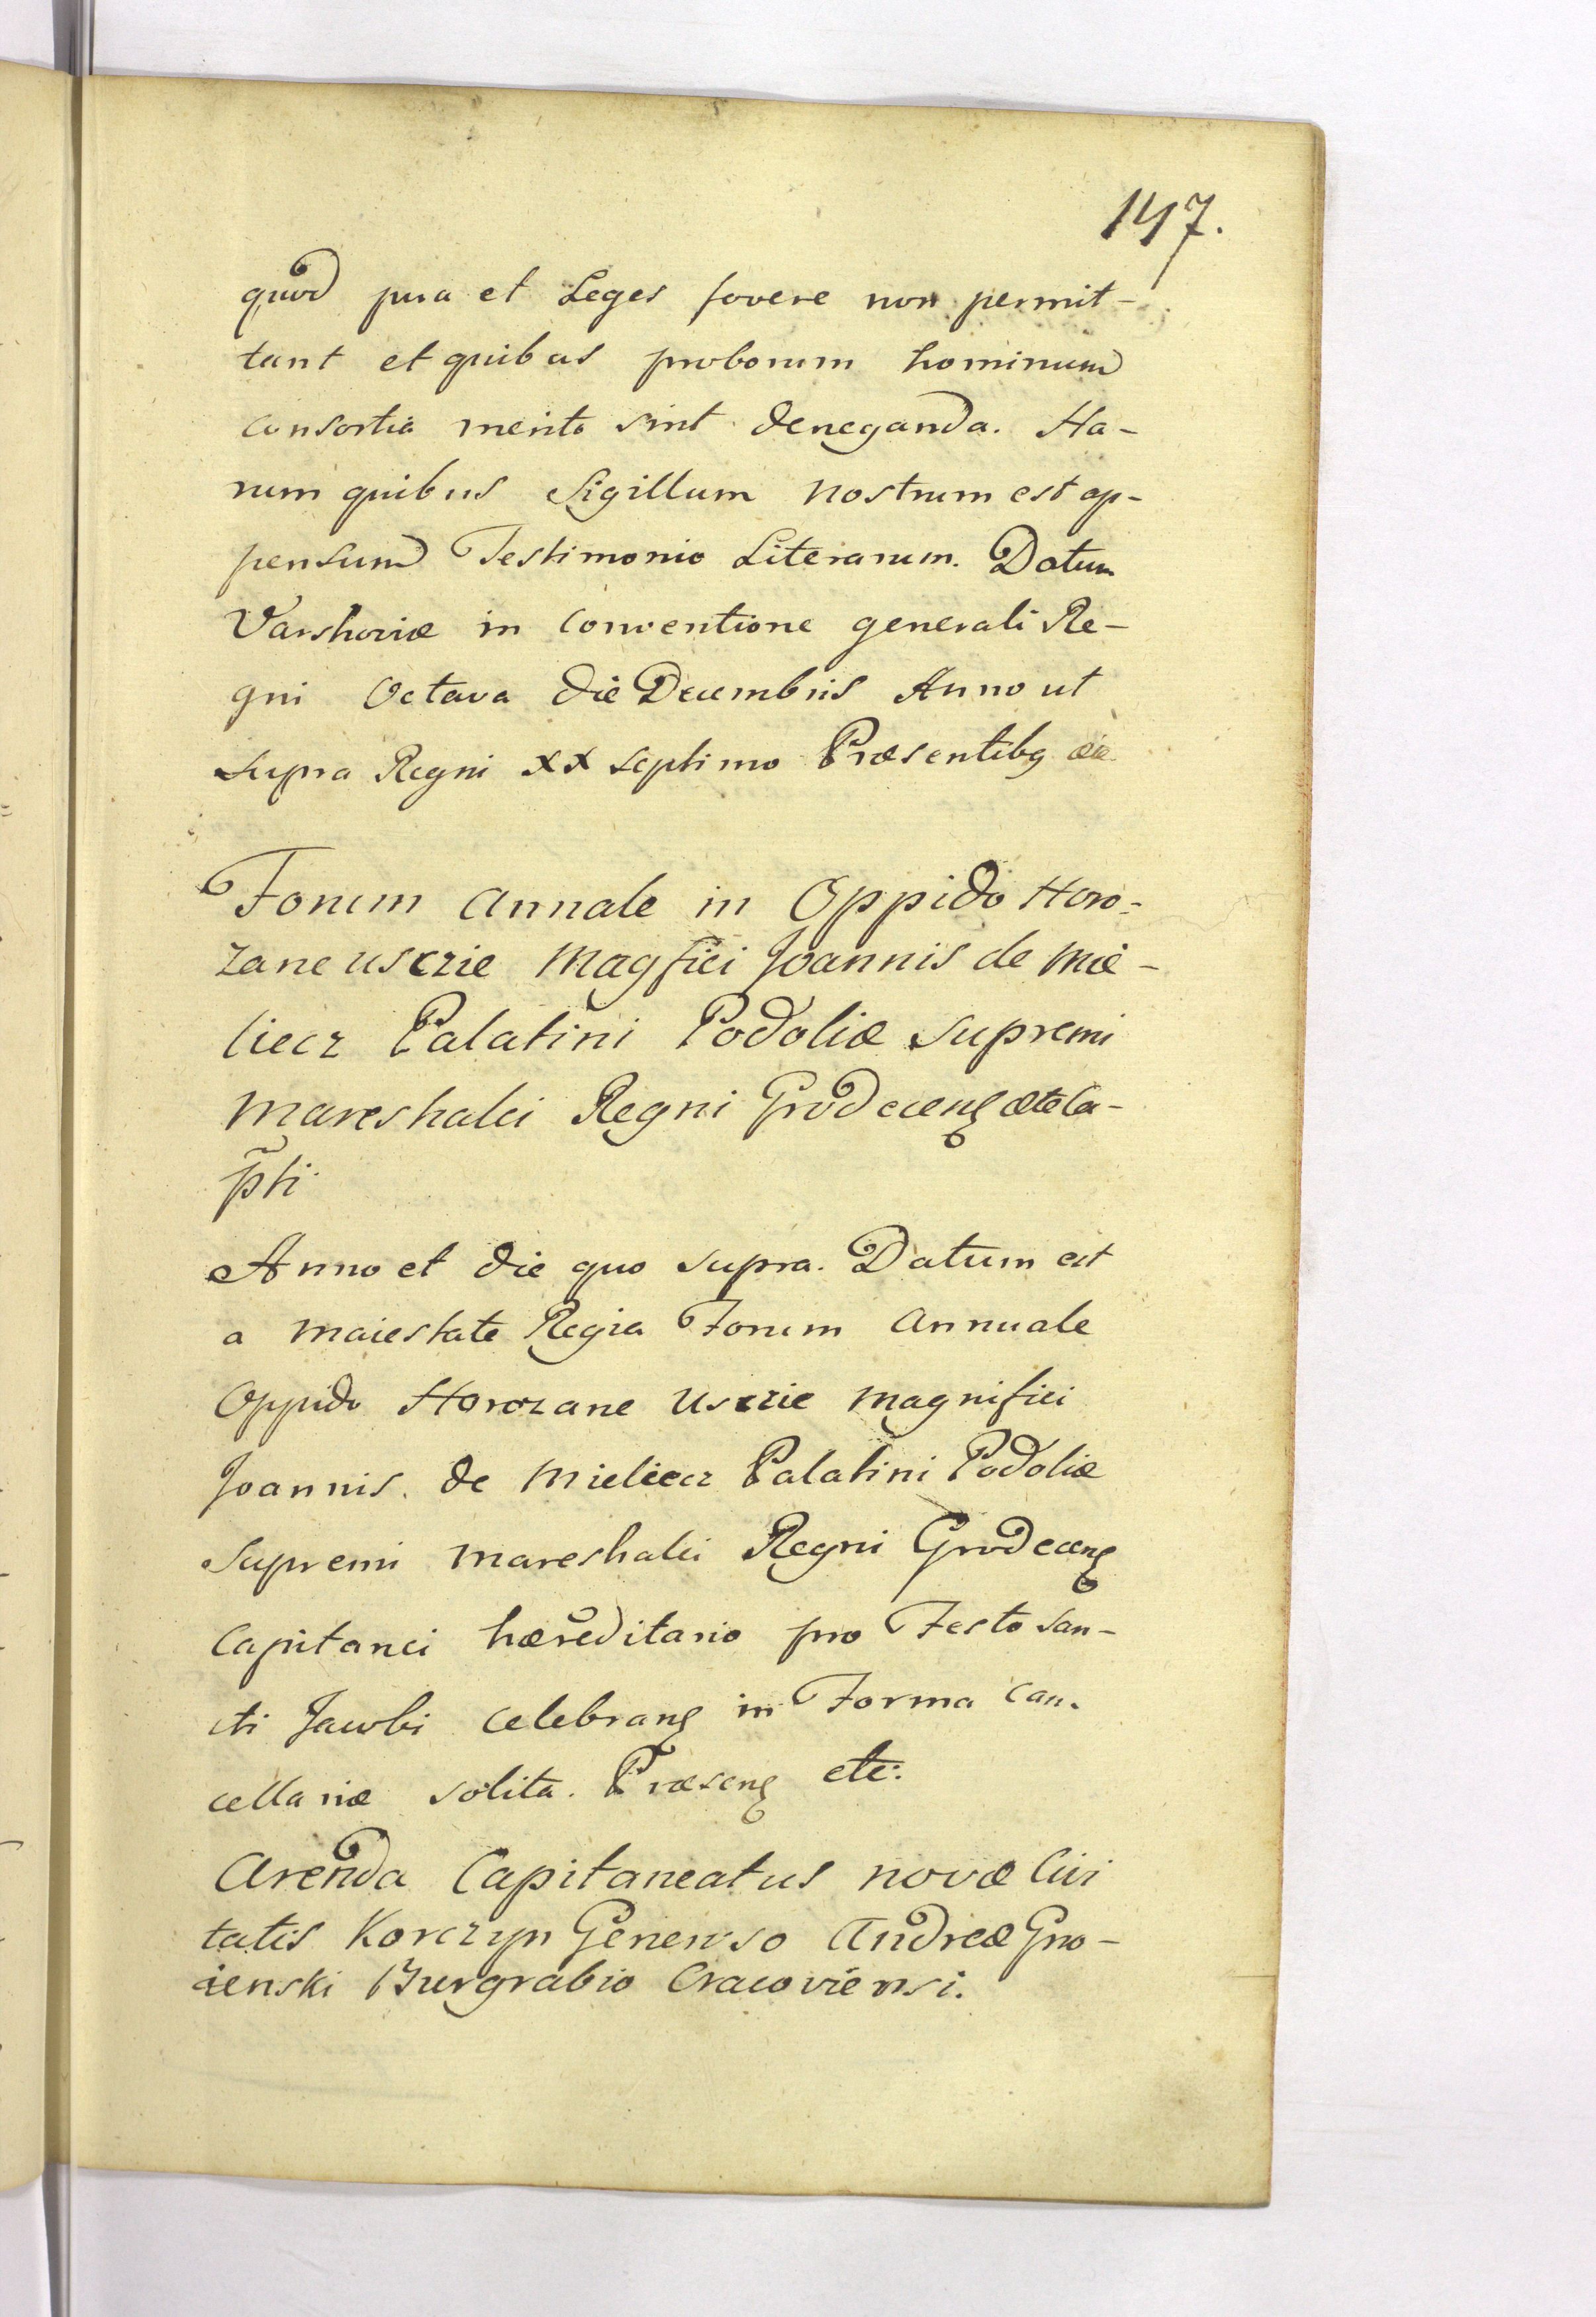 147.
quod jura et Leges fovere non permit-
tant et quibus proborum hominum
consortia merito sint deneganda. Ha-
rum quibus Sigillum nostrum est ap-
pensum Testimonio Literarum. Datum
Varshoviæ in conventione generali Re-
gni Octava die Decembris Anno ut
supra Regni XX septimo Præsentibq
Forum annale in Oppido Horo-
zane usczie Magfici Joannis de Mie-
liecz Palatini Podoliæ Supremi
Mareshalci Regni Grodecenς etc Ca-
p̃ti
Anno et die quo supra. Datum est
a Maiestate Regia Forum Annuale
Oppido Horozane Usczie Magnifici
Joannis de Mieliecz Palatini Podoliæ
Supremi Mareshalci Regni Grodecenς
Capitanei hæreditario pro Festo San-
cti Jacobi celebranς in Forma Can-
cellariæ solita. Præsenς etc.
Arenda Capitaneatus novæ Civi
tatis Korczyn Generoso Andreæ Gno-
ienski Burgrabio Cracoviensi.